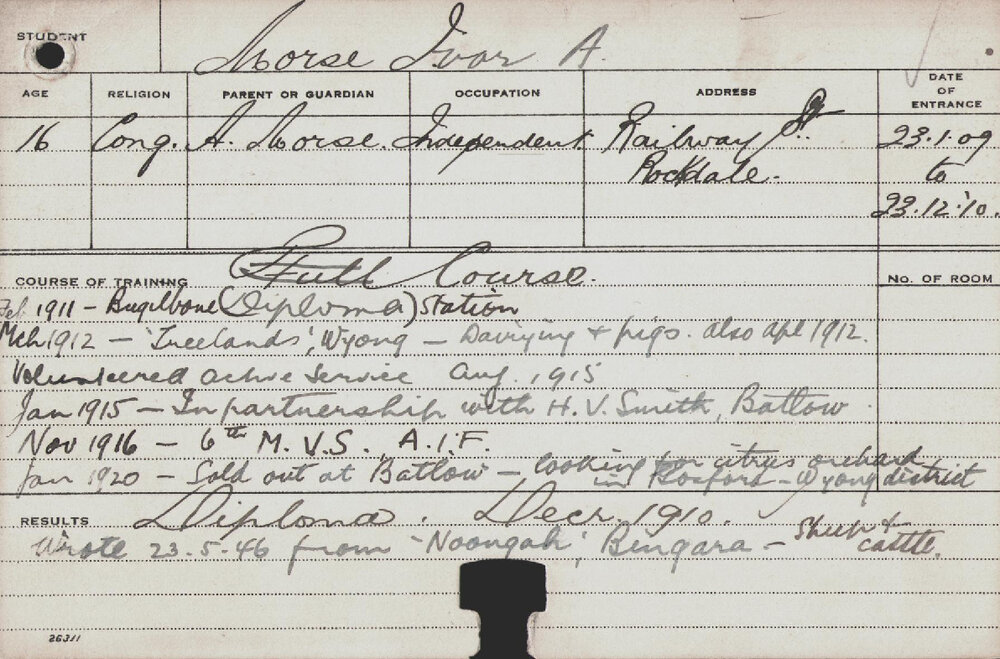 STUDENT Morse Ivor A.
AGE RELIGION PARENT OR GUARDIAN OCCUPATION ADDRESS DATE OF ENTRANCE
16 Cong. A. Morse. Independent Railway St. 23.1.09
Rockdale. to
23.12.10.
COURSE OF TRAINING Full Course. No. OF ROOM
Feb 1911 - Bugilbone (Diploma) Station
Mch 1912 - 'Treelands', Wyong - Dairying & pigs. also Apl 1912.
Volunteered active service Aug. 1915
Jan 1915 - In partnership with H. V. Smith, Batlow
Nov 1916 - 6th M.V.S. A.I.F.
Jan 1920 - Sold out at Batlow - looking for citrus orchard
in Gosford - Wyong district
RESULTS Diploma. Decr. 1910.
Wrote 23.5.46 from 'Noongah', Bingara - Sheep &
cattle.
26311